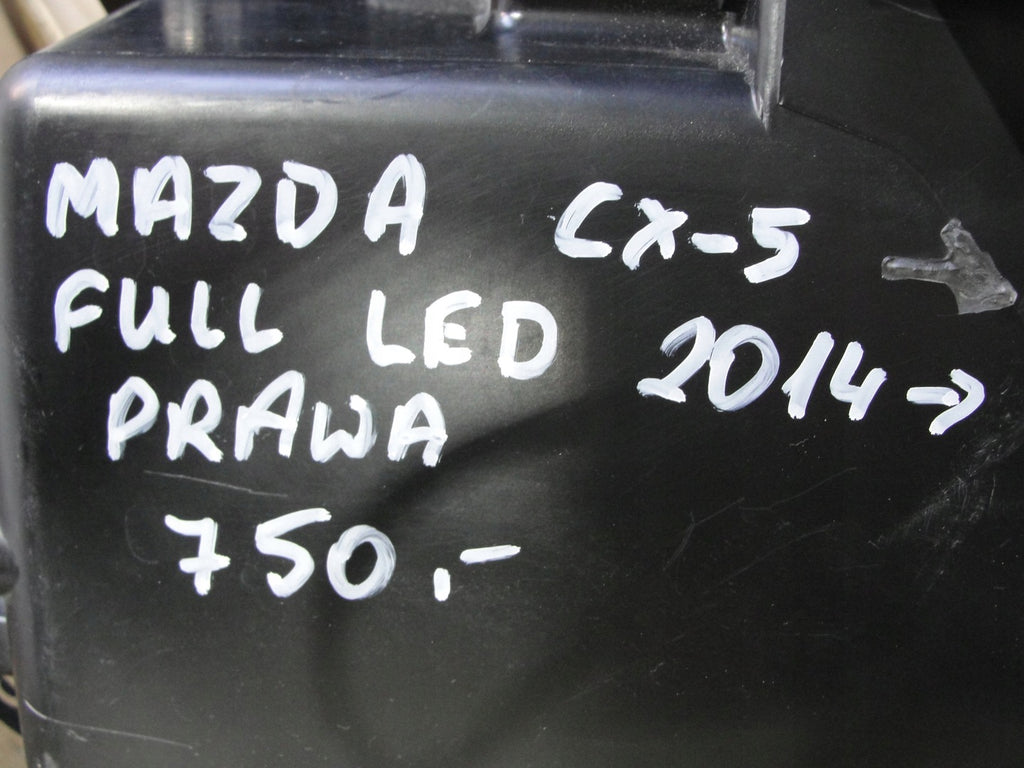 MAZDA CX-5
FULL LED 2014->
PRAWA
750,-